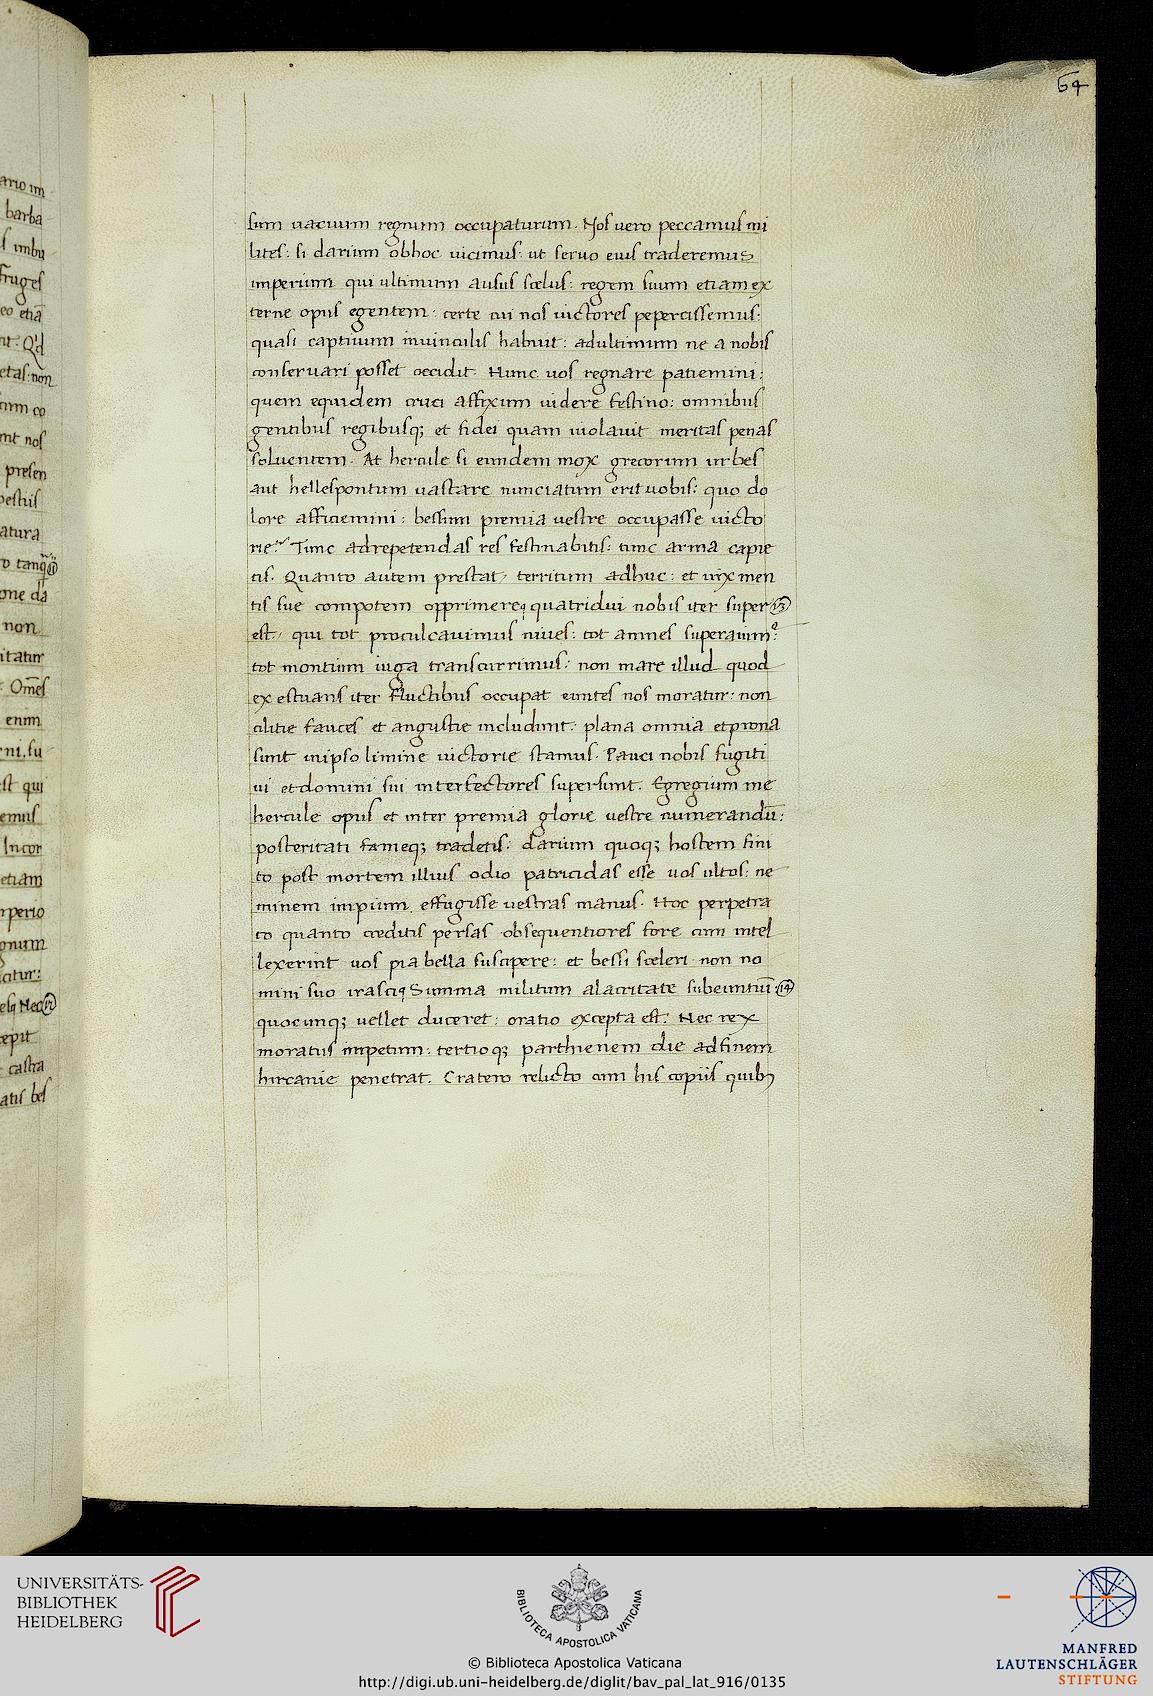 64
sum uacuum regnum occupaturum. Nos uero peccamus mi
lites: si darium obhoc uicimus ut seruo eius traderemus
imperium qui ultimum ausus scelus: regem suum etiam ex
terne opus egentem: certe cui nos uictores pepercissemus:
quasi captiuum inuinculis habuit: adultimum ne a nobis
conseruari posset occidit. Hunc uos regnare patiemini:
quem equidem cruci affixum uidere festino: omnibus
gentibus regibusq; et fidei quam uiolauit meritas penas
soluentem. At hercule si eundem mox grecorum urbes
aut hellespontum uastare nunciatum erit uobis: quo do
lore afficiemini: bessum premia uestre occupasse uicto
rie: Tunc adrepetendas res festinabitis: tunc arma capie
tis. Quanto autem prestat territum adhuc: et uix men
tis sue compotem opprimere quatridui nobis iter super 13
est. qui tot proculcauimus niues: tot amnes superauim9:
tot montium iuga transcurrimus: non mare illud quod
exestuans iter fluctibus occupat euntes nos moratur: non
cilitie fauces et angustie includunt: plana omnia etprona
sunt inipso limine uictorie stamus. Pauci nobis fugiti
ui etdomini sui interfectores supersunt. Egregium me
hercule opus et inter premia glorie uestre numerandū:
posteritati fameq; tradetis: darium quoq; hostem fini
to post mortem illius odio patricidas esse uos ultos: ne
minem impium effugisse uestras manus. Hoc perpetra
to quanto creditis persas obsequentiores fore cum intel
lexerint uos pia bella suscipere: et bessi sceleri non no
mini suo irasci Summa militum alacritate subeuntiū 14
quocunq; uellet duceret: oratio excepta est. Nec rex
moratus impetum: tertioq; parthienem die adfinem
hircanie penetrat. Cratero relicto cum his copiis quib9
ario im
barba
s imbu
fruges
eo etiā
nt: Qd
etas: non
um co
nt nos
presen
uestris
atura
o tanq 11
one dā
non
itatur
Omēs
enim
ni. su
st qui
emus
Incor
etiam
mperio
gnum
citur:
esq Nec 12
cepit
castra
atis bes
UNIVERSITÄTS-
BIBLIOTHEK
HEIDELBERG
BIBLIOTECA APOSTOLICA VATICANA
MANFRED
LAUTENSCHLÄGER
STIFTUNG
© Biblioteca Apostolica Vaticana
http://digi.ub.uni-heidelberg.de/diglit/bav_pal_lat_916/0135